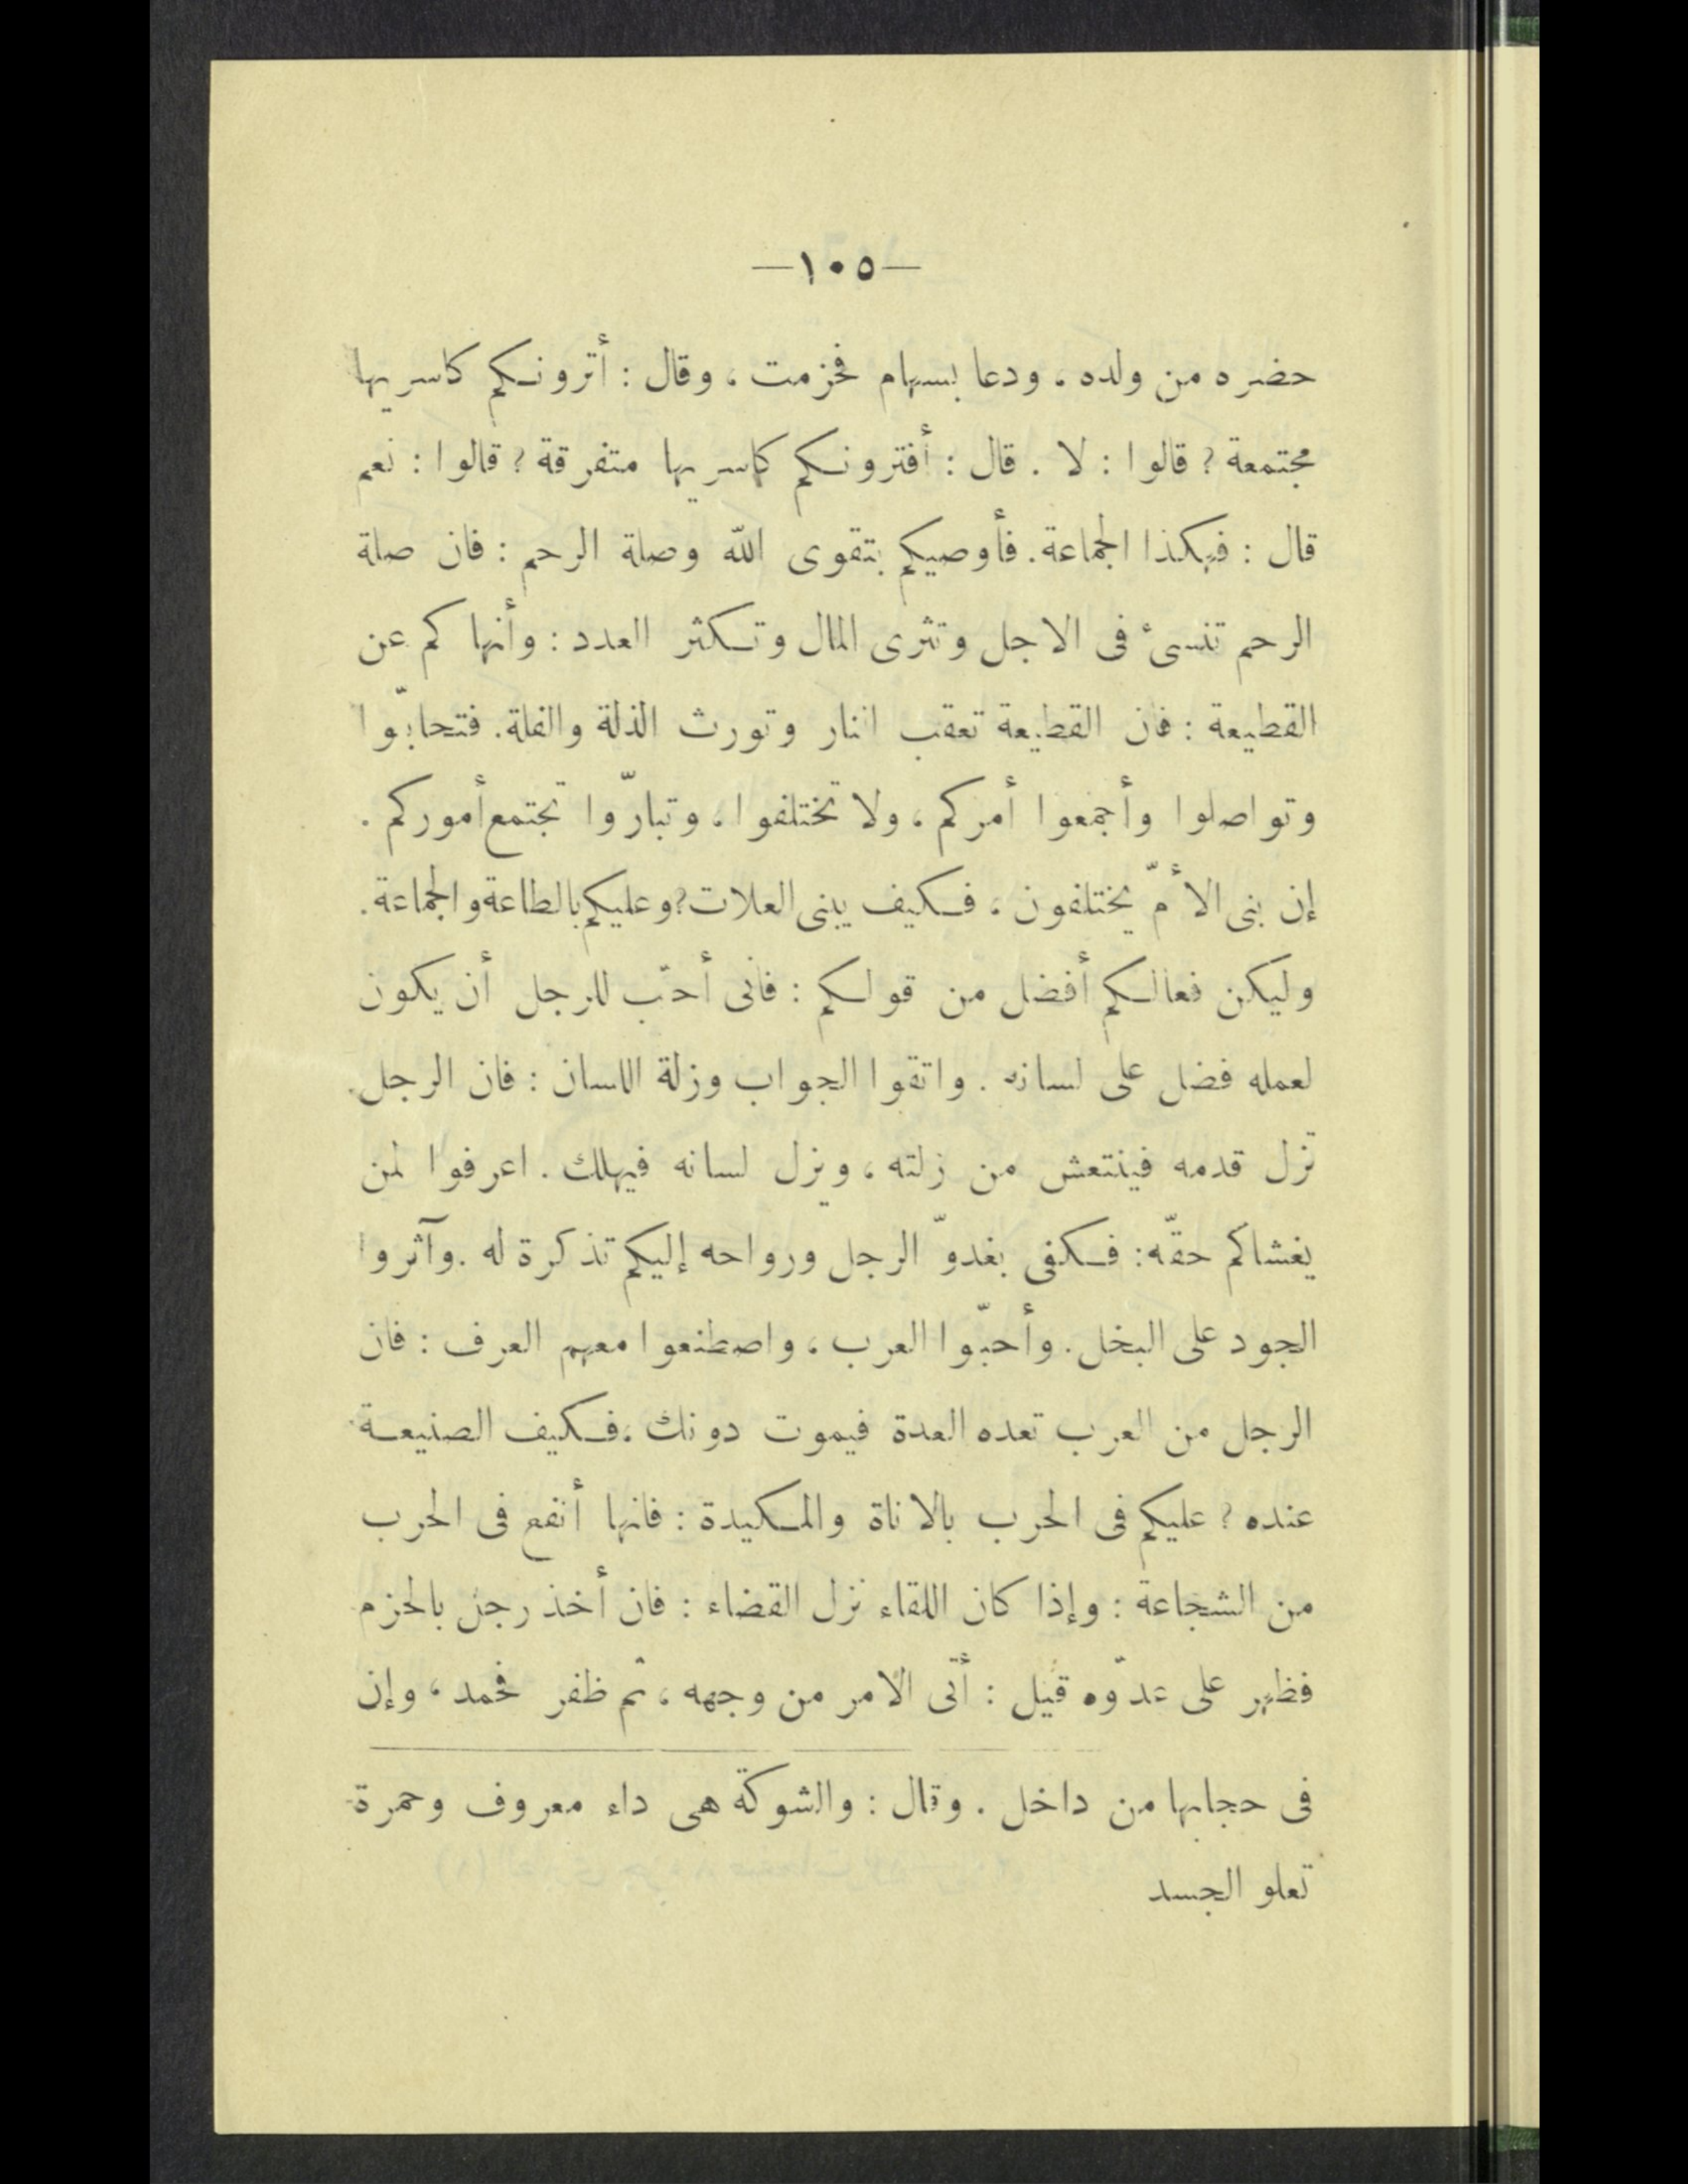 —١٠٥—
حضره من ولده ، ودعا بسهام فحزمت ، وقال : أترونكم كاسريها
مجتمعة ? قالوا : لا . قال : أفترونكم كاسريها متفرقة ? قالوا : نعم
قال : فهكذا الجماعة . فأوصيكم بتقوى الله وصلة الرحم : فان صلة
الرحم تنسئ فى الاجل وتثرى المال وتكثر العدد : وأنهاكم عن
القطيعة : فان القطيعة تعقب النار وتورث الذلة والقلة . فتحابّوا
وتواصلوا وأجمعوا أمركم ، ولا تختلفوا ، وتبارّوا تجتمع أموركم .
إن بنى الأمّ يختلفون ، فكيف ببنى العلات ? وعليكم بالطاعة والجماعة .
وليكن فعالكم أفضل من قولكم : فانى أحبّ للرجل أن يكون
لعمله فضل على لسانه . واتقوا الجواب وزلة اللسان : فان الرجل
تزل قدمه فينتعش من زلته ، ويزل لسانه فيهلك . اعرفوا لمن
يغشاكم حقّه : فكفى بغدوّ الرجل ورواحه إليكم تذكرة له . وآثروا
الجود على البخل . وأحبّوا العرب ، واصطنعوا معهم العرف : فان
الرجل من العرب تعده العدة فيموت دونك ، فكيف الصنيعة
عنده ? عليكم فى الحرب بالاناة والمكيدة : فانها أنفع فى الحرب
من الشجاعة : وإذا كان اللقاء نزل القضاء : فان أخذ رجل بالحزم
فظهر على عدوّه قيل : أتى الامر من وجهه ، ثم ظفر فحمد ، وإن
فى حجابها من داخل . وقال : والشوكة هى داء معروف وحمرة
تعلو الجسد